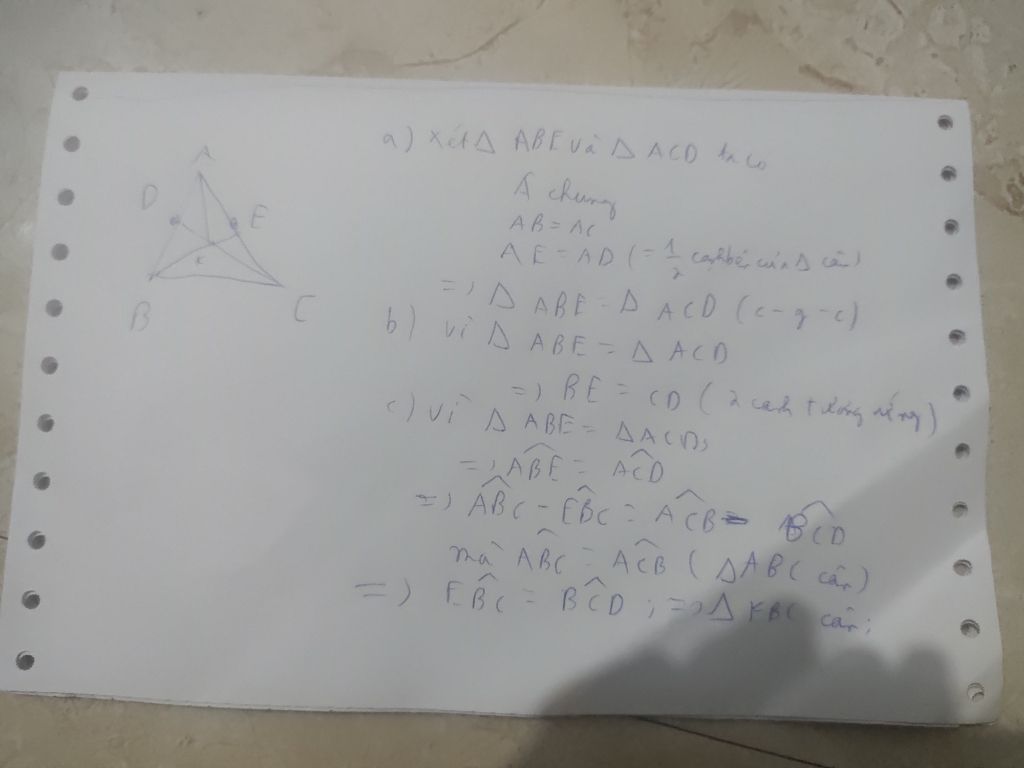 A
D
E
K
B
C
a) Xét Δ ABE và Δ ACD ta có
Â chung
AB = AC
AE = AD (= 1/2 cạnh bên của Δ cân)
=> Δ ABE = Δ ACD (c-g-c)
b) vì Δ ABE = Δ ACD
=> BE = CD (2 cạnh tương ứng)
c) vì Δ ABE = ΔACD;
=> ABE^ = ACD^
=> ABC^ - EBC^ = ACB^ - BCD^
mà ABC^ = ACB^ (ΔABC cân)
=> EBC^ = BCD^ ; => Δ KBC cân;